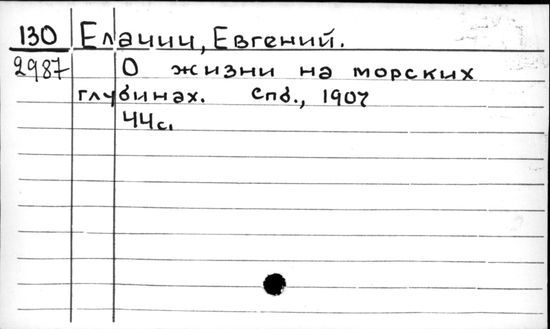 130 Елачич, Евгений.
2987 О жизни на морских
глубинах. Спб., 1907
44с.